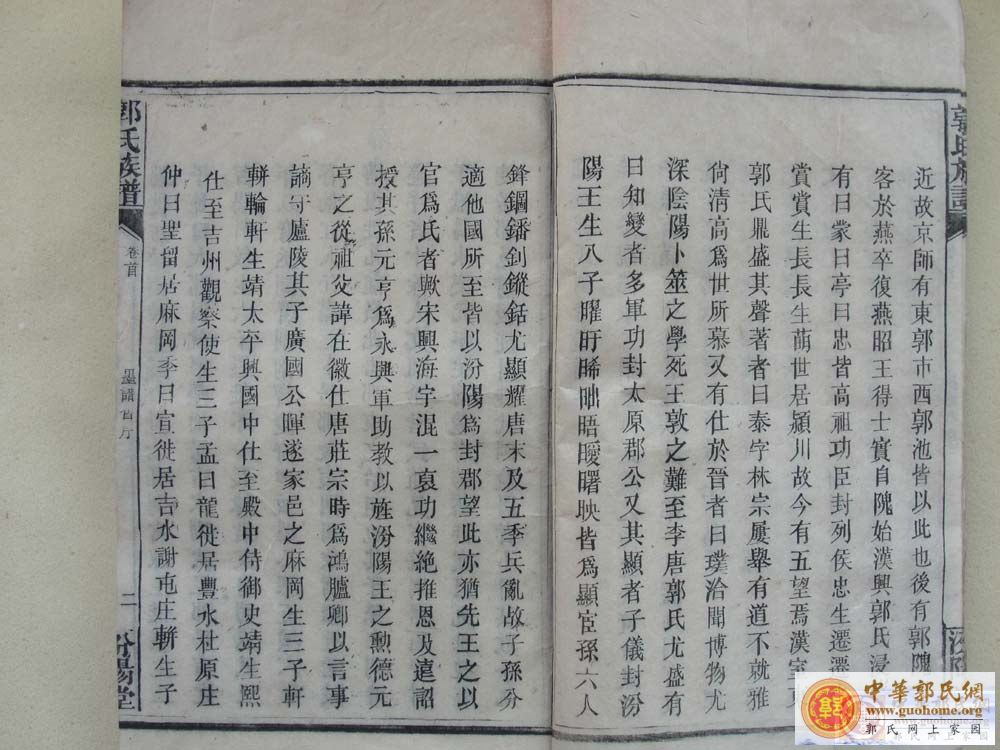 近故京師有東郭市西郭池皆以此也後有郭隗
客於燕卒復燕昭王得士實自隗始漢興郭氏浸
有曰蒙曰亭曰忠皆高祖功臣封列侯忠生遷遷
賞賞生長長生萌世居潁川故今有五望焉漢
郭氏鼎盛其聲著者曰泰字林宗屢舉有道不就雅
尙清高爲世所慕又有仕於晉者曰璞洽聞博物尤
深陰陽卜筮之學死王敦之難至李唐郭氏尤盛有
曰知變者多軍功封太原郡公又其顯者子儀封汾
陽王生八子曜旰晞昢晤曖曙映皆爲顯宦孫六人
鋒鋼鐇釗鏦銛尤顯耀唐末及五季兵亂故子孫分
適他國所至皆以汾陽爲封郡望此亦猶先王之以
官爲氏者歟宋興海宇混一哀功繼絶推恩及遠詔
授其孫元亨爲永興軍助教以旌汾陽王之勲德元
亨之從祖父諱在徽仕唐莊宗時爲鴻臚卿以言事
謫守廬陵其子廣國公暉遂家邑之麻岡生三子軒
軿輪軒生靖太平興國中仕至殿中侍御史靖生熙
仕至吉州觀察使生三子孟曰龍徙居豐水杜原庄
仲曰聖留居麻岡季曰宣徙居吉水謝屯庄軿生子
郭氏族譜
卷首
二
汾陽堂
郭氏族譜
中華郭氏網
www.guohome.org
郭氏網上家園